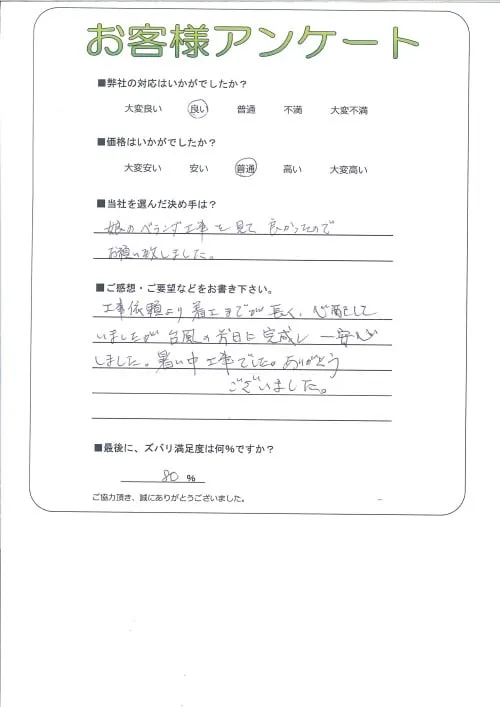 お客様アンケート
■弊社の対応はいかがでしたか？
大変良い 良い 普通 不満 大変不満
■価格はいかがでしたか？
大変安い 安い 普通 高い 大変高い
■当社を選んだ決め手は？
娘のベランダ工事を見て良かったので
お願い致しました。
■ご感想・ご要望などをお書き下さい。
工事依頼より着工までが長く、心配して
いましたが台風の前日に完成し一安心
しました。暑い中工事でした。ありがとう
ございました。
■最後に、ズバリ満足度は何％ですか？
80 %
ご協力頂き、誠にありがとうございました。